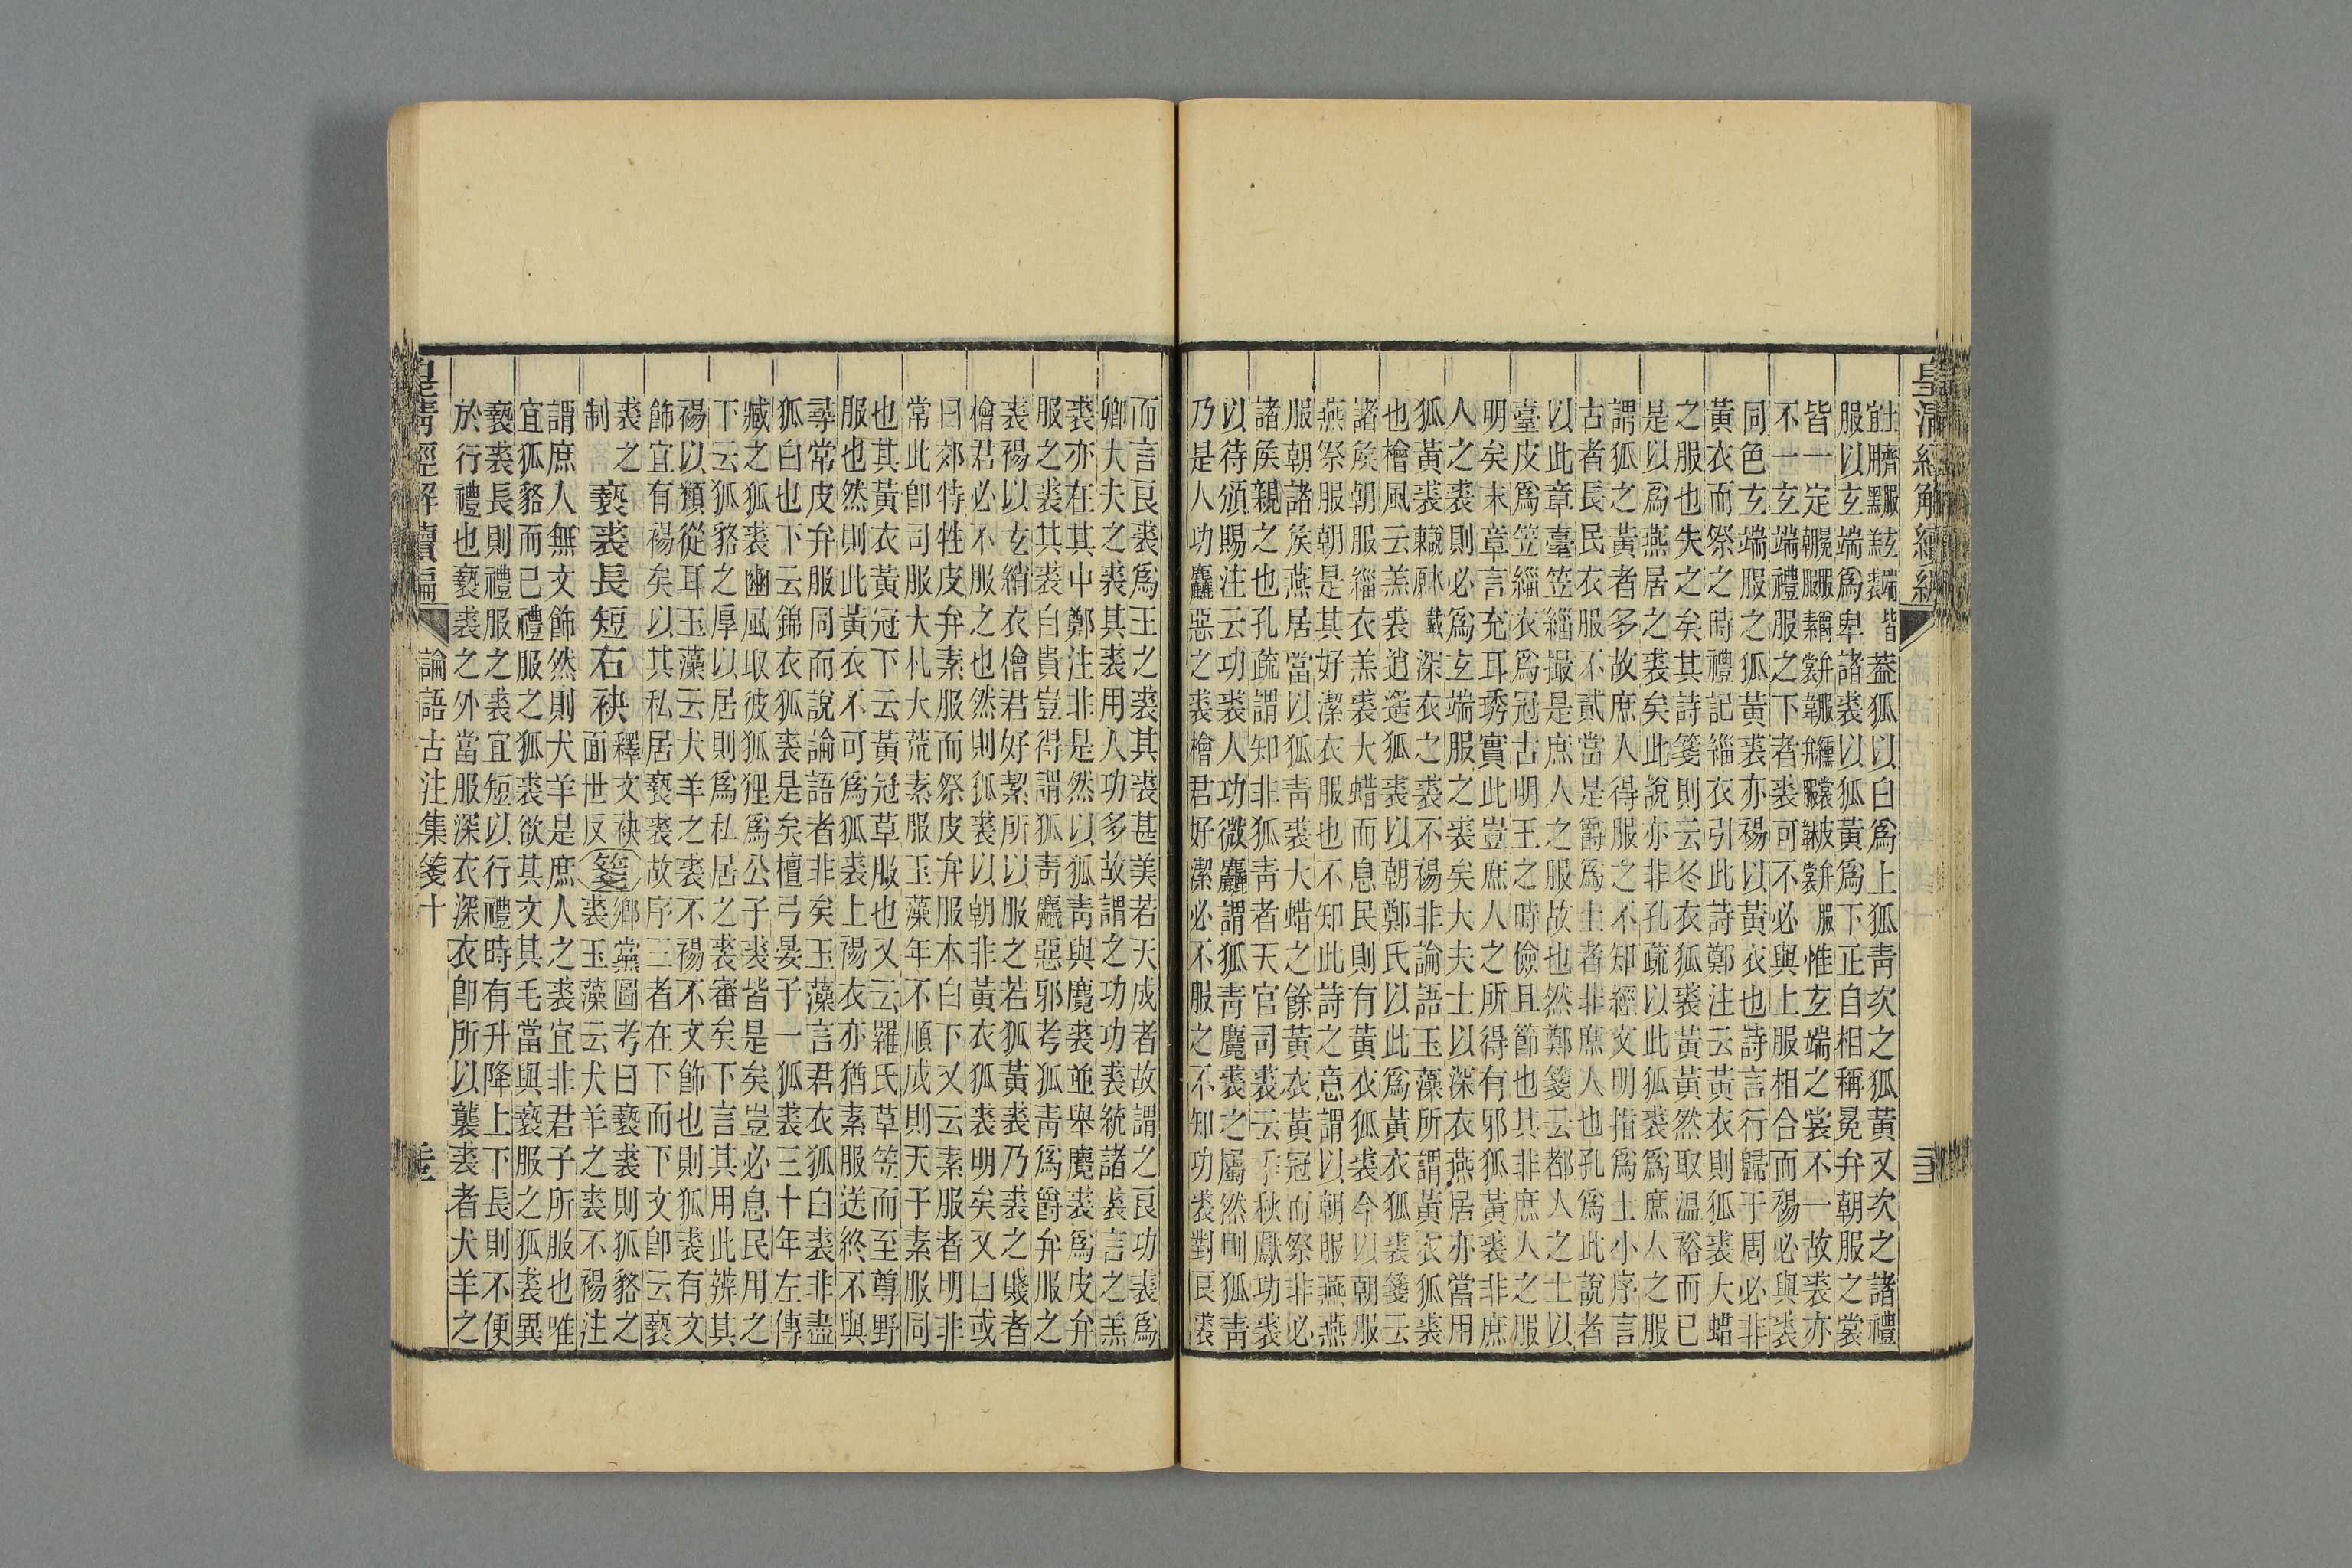 皇清經解續編
蓋狐以白爲上狐青次之狐黃又次之諸禮
服以玄端爲卑諸裘以狐黃爲下正自相稱冕弁朝服之裳
皆一定惟玄端之裳不一故裘亦
不一玄端禮服之下者裘可不必與上服相合而裼必與裘
同色玄端服之狐黃裘亦裼以黃衣也詩言行歸于周必非
黃衣而祭之時禮記緇衣引此詩鄭注云黃衣則狐裘大蜡
之服也失之矣其詩箋則云冬衣狐裘黃黃然取温裕而已
是以爲燕居之裘矣此說亦非孔疏以此狐裘爲庶人之服
謂狐之黃者多故庶人得服之不知經文明指爲士小序言
古者長民衣服不貳當是爵爲士者非庶人也孔爲此說者
以此章臺笠緇撮是庶人之服故也然鄭箋云都人之士以
臺皮爲笠緇衣爲冠古明王之時儉且節也其非庶人之服
明矣末章言充耳琇實此豈庶人之所得有邪狐黃裘非庶
人之裘則必爲玄端服之裘矣大夫士以深衣燕居亦當用
狐黃裘深衣之裘不裼非論語玉藻所謂黃衣狐裘
也檜風云羔裘逍遥狐裘以朝鄭氏以此爲黃衣狐裘箋云
諸矦朝服緇衣羔裘大蜡而息民則有黃衣狐裘今以朝服
燕祭服朝是其好潔衣服也不知此詩之意謂以朝服燕燕
服朝諸矦燕居當以狐青裘大蜡之餘黃衣黃冠而祭非必
諸矦親之也孔疏謂知非狐青者天官司裘云季秋獻功裘
以待頒賜注云功裘人功微麤謂狐青麛裘之屬然則狐青
乃是人功麤惡之裘檜君好潔必不服之不知功裘對良裘
而言良裘爲王之裘其裘甚美若天成者故謂之良功裘爲
卿大夫之裘其裘用人功多故謂之功功裘統諸裘言之羔
裘亦在其中鄭注非是然以狐青與麛裘並舉麛裘爲皮弁
服之裘其裘白貴豈得謂狐青麤惡邪考狐青爲爵弁服之
裘裼以玄綃衣僧君好絜所以服之若狐黃裘乃裘之賤者
檜君必不服之也然則狐裘以朝非黃衣狐裘明矣又曰或
曰郊特牲皮弁素服而祭皮弁服本白下又云素服者明非
常此卽司服大札大荒素服玉藻年不順成則天子素服同
也其黃衣黃冠下云黃冠草服也又云羅氏草笠而至尊野
服也然則此黃衣不可爲狐裘上裼衣亦猶素服送終不與
尋常皮弁服同而說論語者非矣玉藻言君衣狐白裘非盡
狐白也下云錦衣狐裘是矣檀弓晏子一狐裘三十年左傳
臧之狐裘豳風取彼狐狸爲公子裘皆是矣豈必息民用之
下云狐貉之厚以居則爲私居之裘審矣下言其用此辨其
裼以纇從耳玉藻云犬羊之裘不裼不文飾也則狐裘有文
飾宜有裼矣以其私居褻裘故序二者在下而下文卽云褻
裘之制 褻裘長短右袂 釋文袂面世反 箋 鄉黨圖考曰褻裘則狐貉之
裘玉藻云犬羊之裘不裼注
謂庶人無文飾然則犬羊是庶人之裘宜非君子所服也唯
宜狐貉而已禮服之狐裘欲其文其毛當與褻服之狐裘異
褻裘長則禮服之裘宜短以行禮時有升降上下長則不便
於行禮也褻裘之外當服深衣深衣卽所以襲裘者犬羊之
皇清經解續編 論語古注集箋十